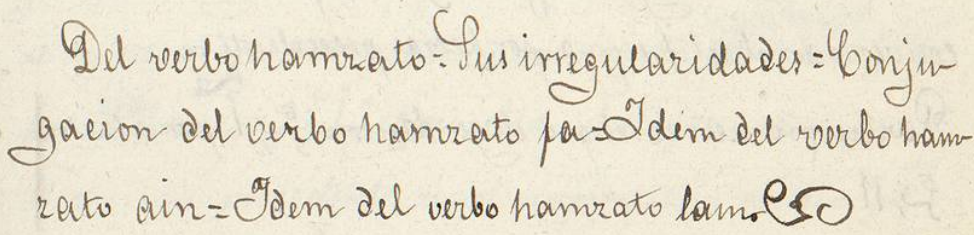 Del verbo hamzato = Sus irregularidades = Conju-
gacion del verbo hamzato fa = Idem del verbo ham-
zato ain = Idem del verbo hamzato lam.